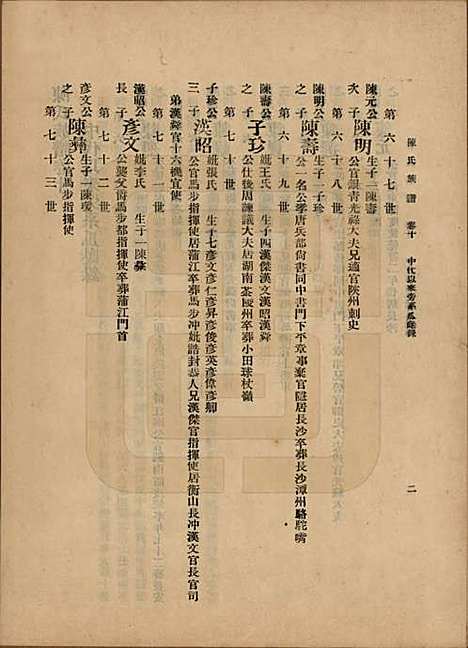 陳氏族譜　卷十　中代以來旁系瓜綿錄　二
第六十七世
陳元公
次子陳明公官銀青光祿大夫兄適官陝州刺史
第六十八世
陳明公生子一陳壽
之子陳壽公一名公季唐兵部尚書同中書門下平章事棄官隱居長沙卒葬長沙潭州駱駝嘴
第六十九世
陳壽公生子一子珍
之子子珍公仕後周諫議大夫居湖南茶陵州卒葬小田球杖嶺
第七十世
子珍公妣王氏　生子四漢傑漢文漢昭漢舜
三子漢昭公官馬步指揮使居蒲江卒葬馬步沖妣誥封恭人兄漢傑官指揮使居衡山長沖漢文官長官司
弟漢舜官十六機宜使
第七十一世
漢昭公妣張氏　生子七彥文彥仁彥昇彥俊彥英彥偉彥卿
長子彥文公襲父銜馬步都指揮使卒葬蒲江門首
第七十二世
彥文公妣李氏　生子一陳彝
之子陳彝公官馬步指揮使
第七十三世